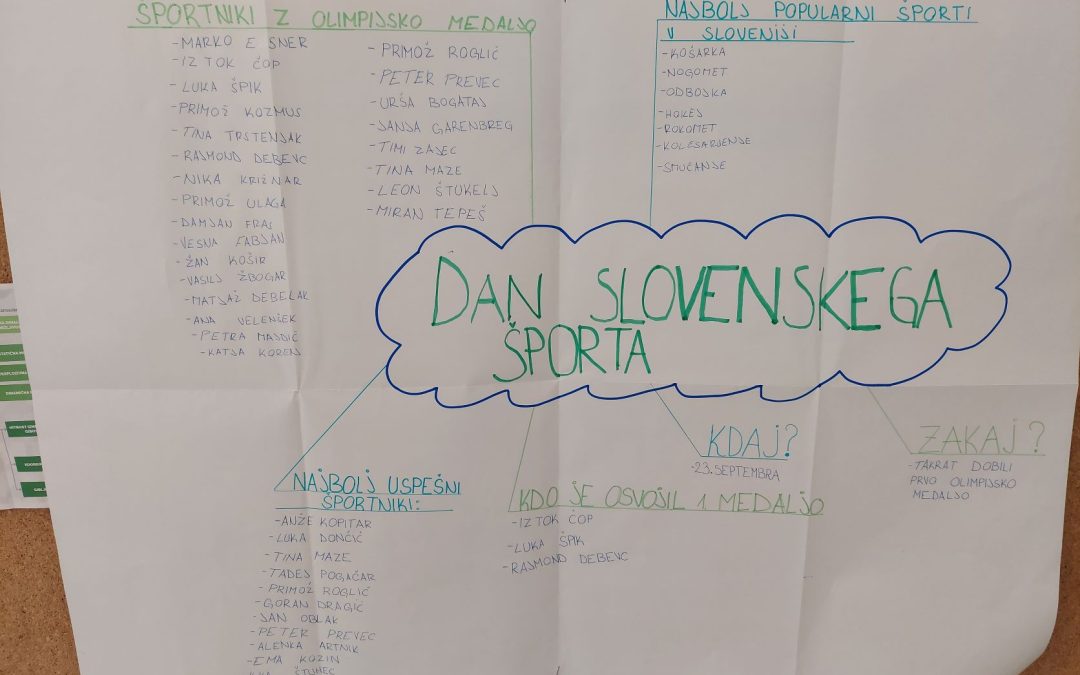 ŠPORTNIKI Z OLIMPIJSKO MEDALJO
- MARKO E SNER
- IZTOK ČOP
- LUKA ŠPIK
- PRIMOŽ KOZMUS
- TINA TRSTENJAK
- RAJMOND DEBEVC
- NIKA KRIŽNAR
- PRIMOŽ ULAGA
- DAMJAN FRAS
- VESNA FABJAN
- ŽAN KOŠIR
- VASILJ ŽBOGAR
- MATJAŽ DEBELAK
- ANA VELENŠEK
- PETRA MAJDIČ
- KATJA KOREN
- PRIMOŽ ROGLIČ
- PETER PREVEC
- URŠA BOGATAJ
- JANJA GARENBREG
- TIMI ZAJEC
- TINA MAZE
- LEON ŠTUKELJ
- MIRAN TEPEŠ
NAJBOLJ POPULARNI ŠPORTI
V SLOVENIJI
- KOŠARKA
- NOGOMET
- ODBOJKA
- HOKEJ
- ROKOMET
- KOLESARJENJE
- SMUČANJE
DAN SLOVENSKEGA
ŠPORTA
NAJBOLJ USPEŠNI
ŠPORTNIKI:
- ANŽE KOPITAR
- LUKA DONČIĆ
- TINA MAZE
- TADEJ POGAČAR
- PRIMOŽ ROGLIČ
- GORAN DRAGIĆ
- JAN OBLAK
- PETER PREVEC
- ALENKA ARTNIK
- EMA KOZIN
ŠTUHEC
KDO JE OSVOJIL 1 MEDALJO
- IZTOK ČOP
- LUKA ŠPIK
- RAJMOND DEBEVC
KDAJ?
- 23. SEPTEMBRA
ZAKAJ?
- TAKRAT DOBILI
PRVO OLIMPIJSKO
MEDALJO